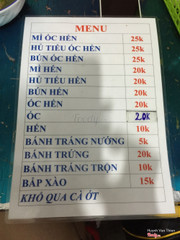 MENU
MÌ ỐC HẾN 25k
HỦ TIẾU ỐC HẾN 25k
BÚN ỐC HẾN 25k
MÌ HẾN 20k
HỦ TIẾU HẾN 20k
BÚN HẾN 20k
ỐC HẾN 20k
ỐC 20k
HẾN 10k
BÁNH TRÁNG NƯỚNG 5k
BÁNH TRỨNG 20k
BÁNH TRÁNG TRỘN 10k
BẮP XÀO 15k
KHÔ QUA CÀ ỚT